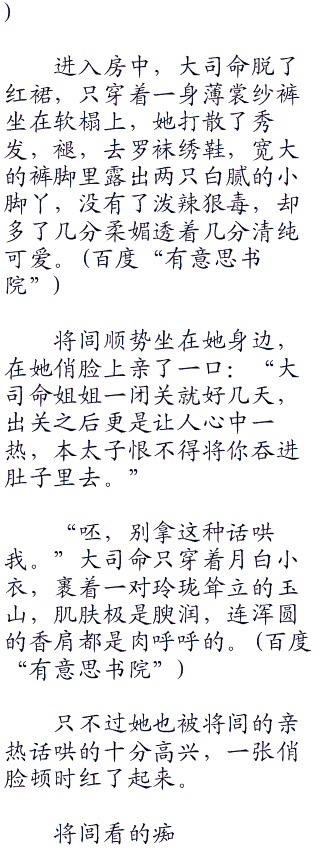 )
进入房中，大司命脱了
红裙，只穿着一身薄裳纱裤
坐在软榻上，她打散了秀
发，褪，去罗袜绣鞋，宽大
的裤脚里露出两只白腻的小
脚丫，没有了泼辣狠毒，却
多了几分柔媚透着几分清纯
可爱。(百度“有意思书
院”)
将闾顺势坐在她身边，
在她俏脸上亲了一口：“大
司命姐姐一闭关就好几天，
出关之后更是让人心中一
热，本太子恨不得将你吞进
肚子里去。”
“呸，别拿这种话哄
我。”大司命只穿着月白小
衣，裹着一对玲珑耸立的玉
山，肌肤极是腴润，连浑圆
的香肩都是肉呼呼的。(百度
“有意思书院”)
只不过她也被将闾的亲
热话哄的十分高兴，一张俏
脸顿时红了起来。
将闾看的痴